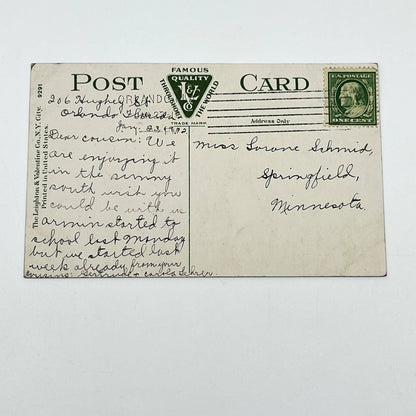 FAMOUS
QUALITY
THROUGHOUT THE WORLD
L&V Co
TRADE MARK
POST CARD
The Leighton & Valentine Co., N.Y. City.
Printed in United States.
9291
U.S. POSTAGE
ONE CENT
Address Only
ORLANDO
206 Hughey St
Orlando Fla
Jan. 22, 1912
Dear cousin: We
are enjoying it
in the sunny
south wish you
could be with us
armin started to
school last Monday
but we started last
week already from your
cousins: Gertrude + Carola
Miss Lorane Schmid,
Springfield,
Minnesota.